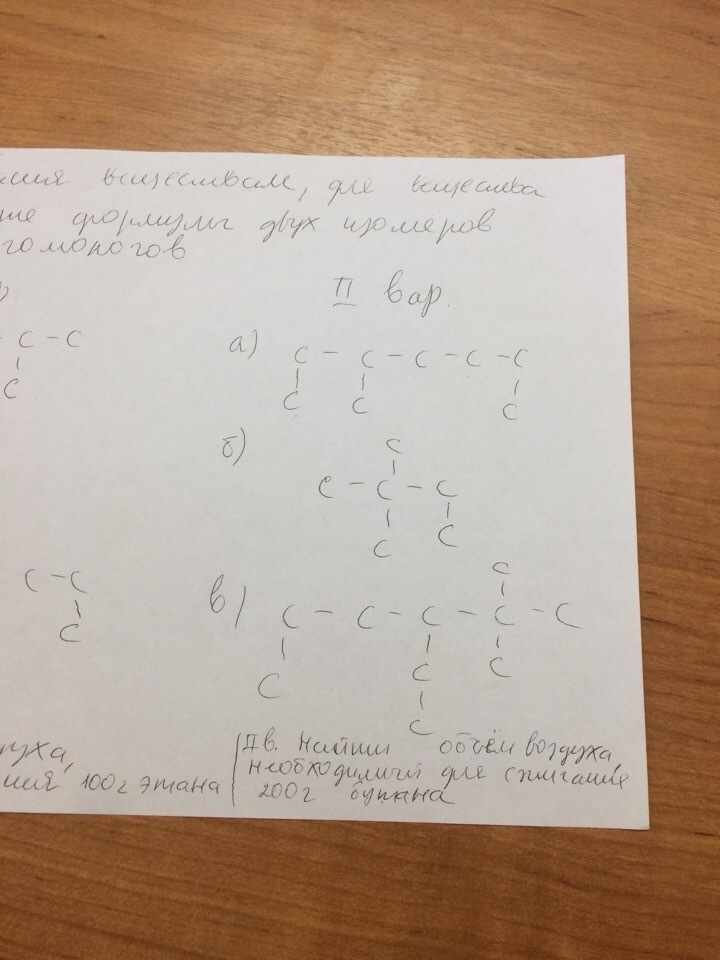 ания веществам, для вещества
ше формулы двух изомеров
гомологов
II вар.
– C – C
C
а) C – C – C – C – C
C C C
б) C
C – C – C
C C
C – C
C
в) C
C – C – C – C – C
C C C
C
духа,
ния 100г этана
II в. Найти объём воздуха,
необходимый для сжигания
200г бутана